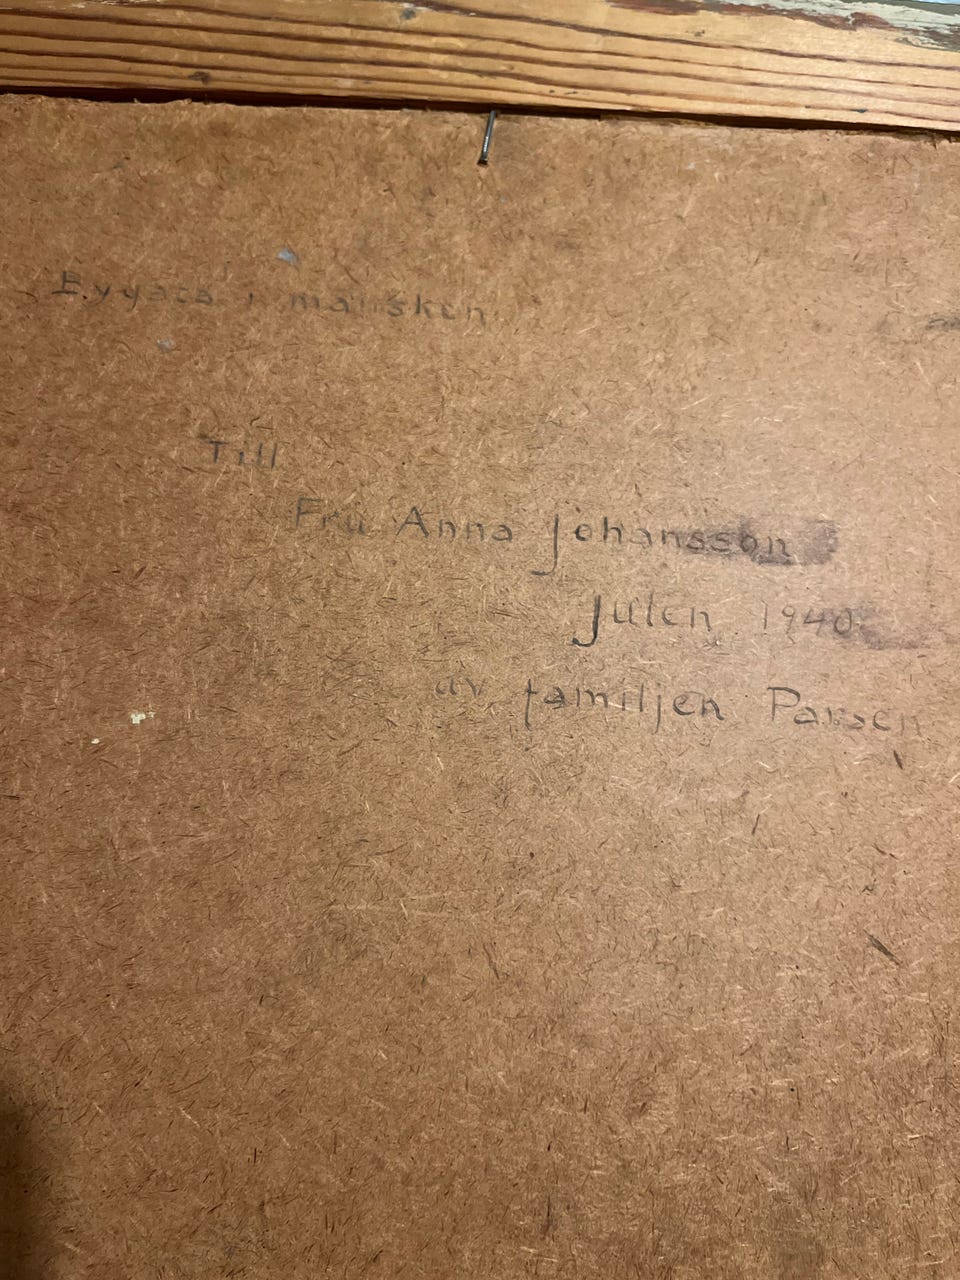 i månsken
Till
Fru Anna Johansson
Julen 1940
av familjen